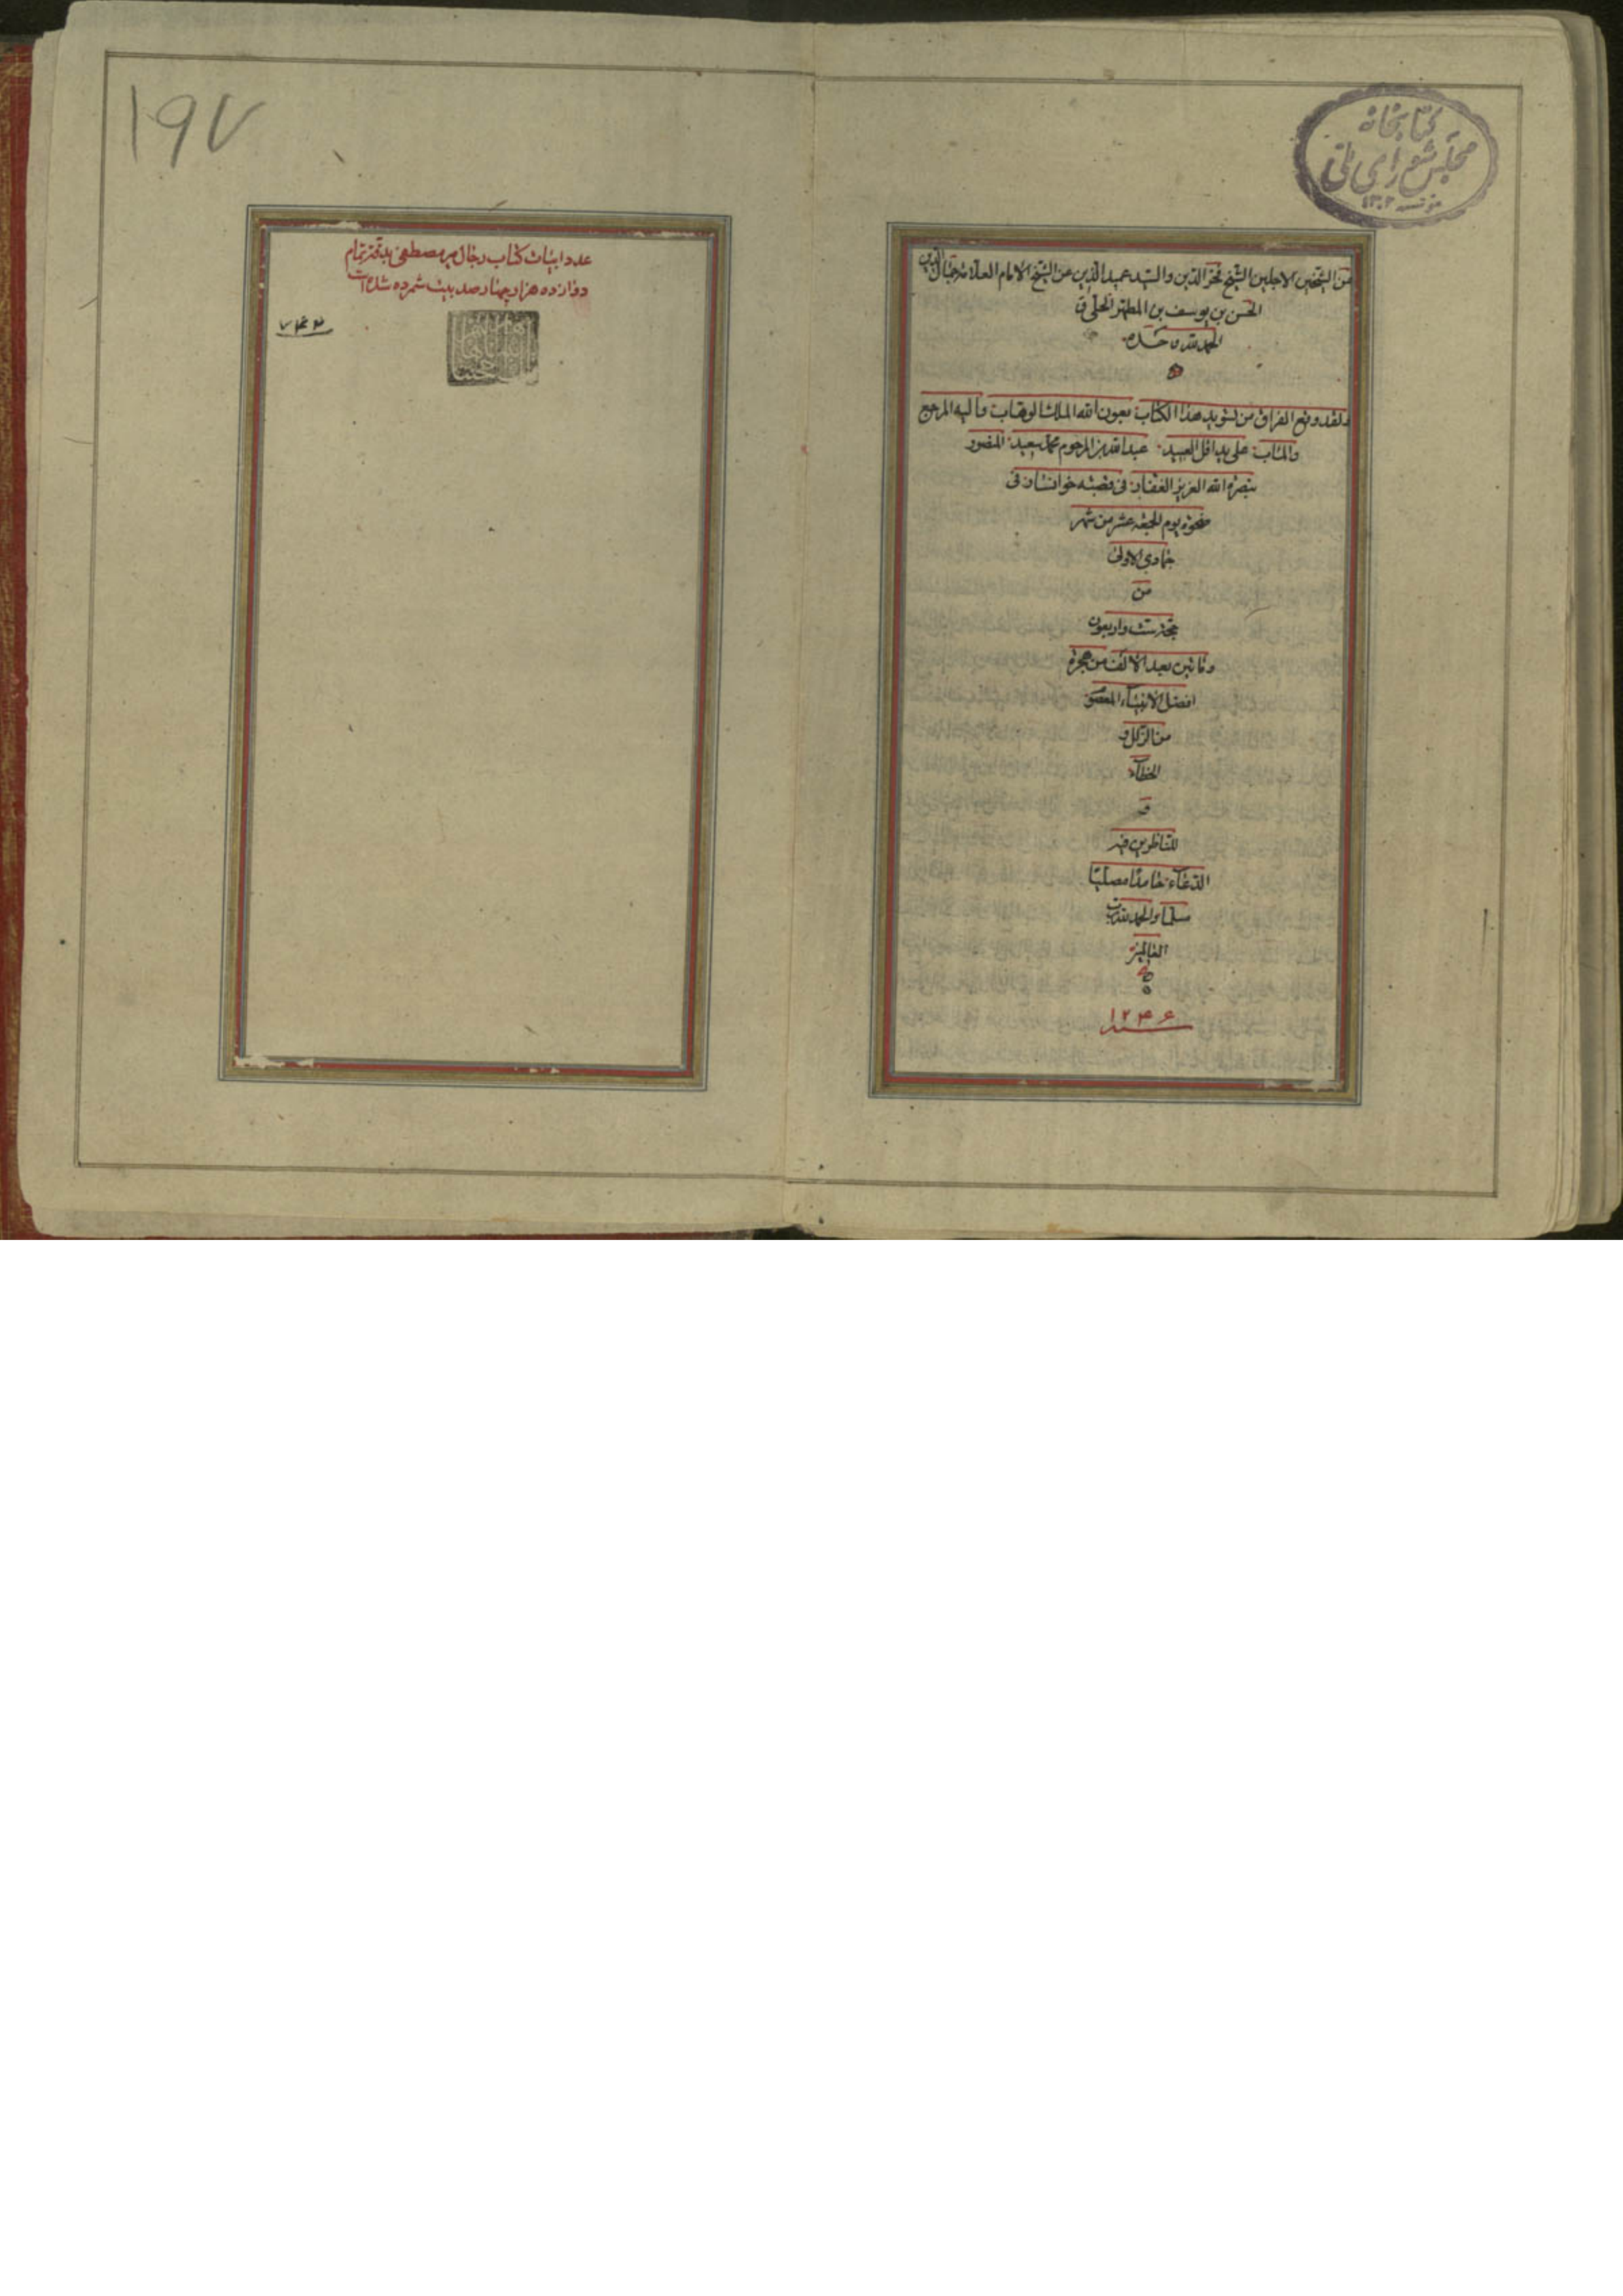 كتابخانه
مجلس شورای ملی
مؤسسه ١٣٠٢
من الشيخين الاجلين الشيخ فخر الدين والسيد عميد الدين عن الشيخ الامام العلامة جمال الدين
الحسن بن يوسف بن المطهر الحلي ق
الحمد لله وحده
ولقد وقع الفراق من تسويد هذا الكتاب بعون الله الملك الوهاب واليه المرجع
والمئاب على يد اقل العبيد عبدالله بن المرحوم محمد سعيد المنصور
بنصرة الله العزيز الغفار في قصبة خوانسار في
ضحوة يوم الجمعة عشر من شهر
جمادى الاولى
من
ست واربعون
ومأتين بعد الالف من هجرة
افضل الانبياء المعصوم
من الزلل و
الخطاء
و
للناظرين فيه
الدعاء حامدا مصليا
مسلما والحمد لله رب
العالمين
١٢٤٦
١٩٧
عدد ابيات كتاب رجال مير مصطفى بدقت تمام
دوازده هزار چهار صد بيت شمرده شده است